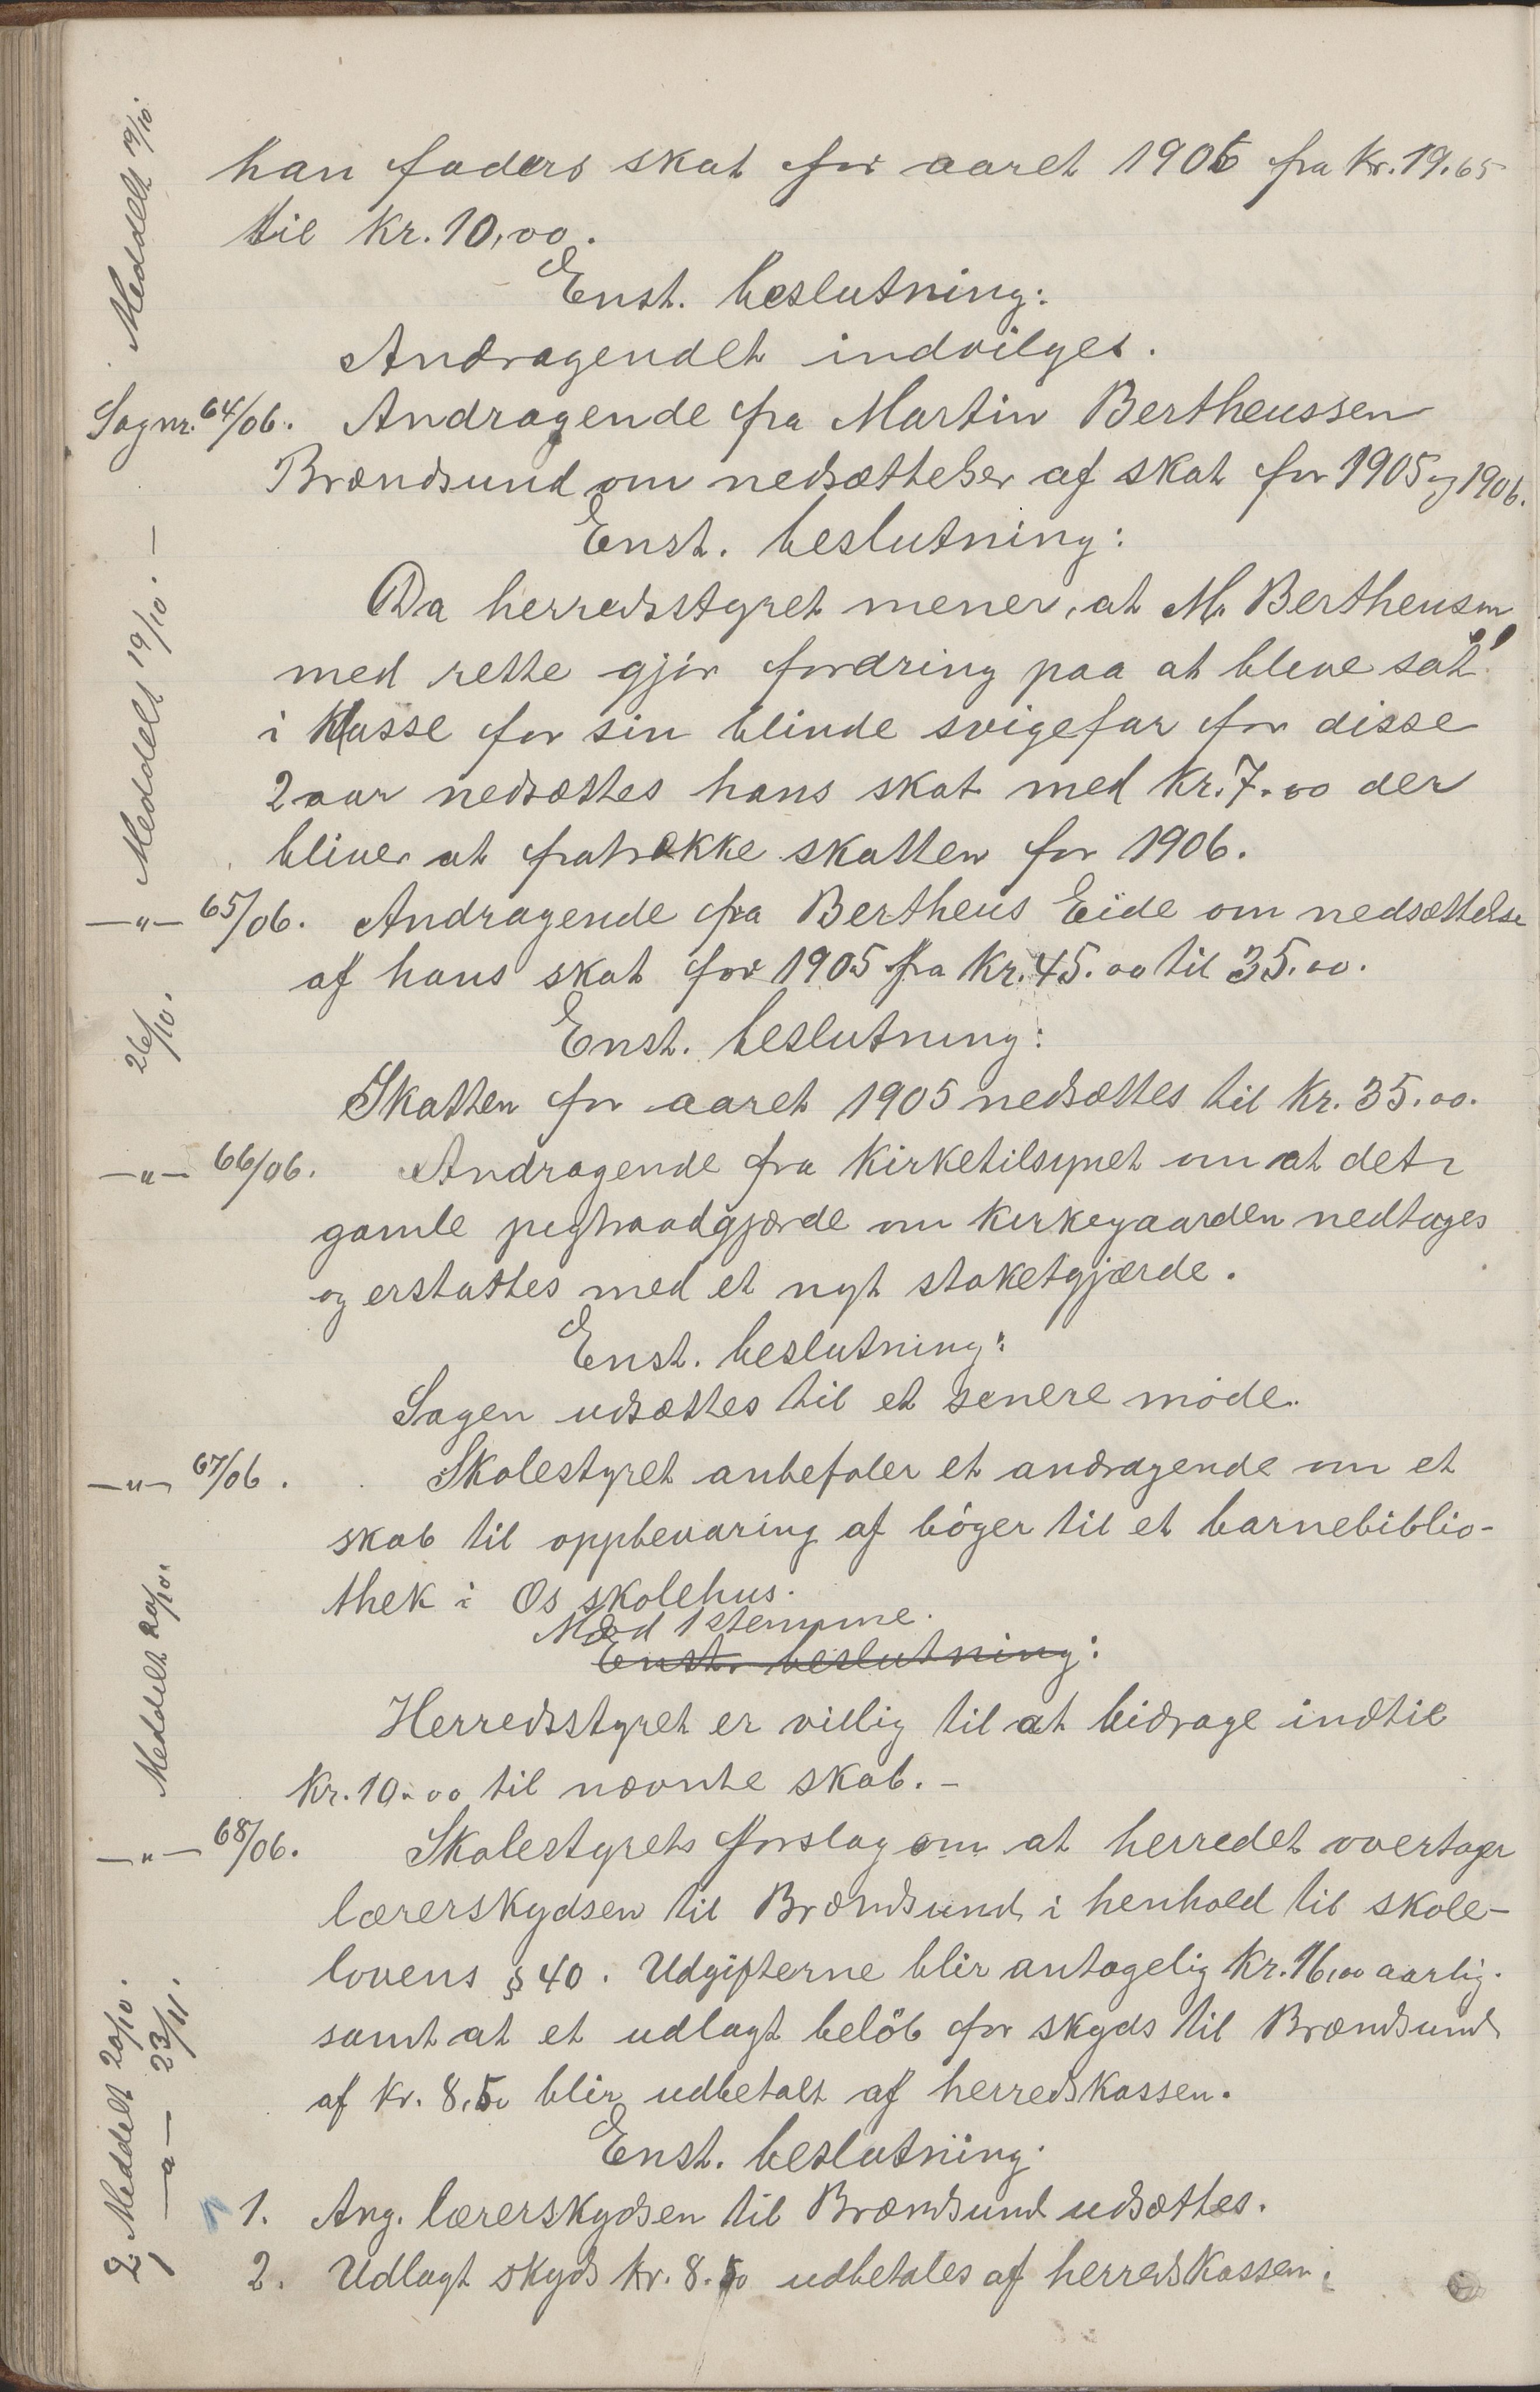 han faders skat for aaret 1906 fra Kr. 19.65
til Kr. 10,00.
Enst. beslutning:
Andragendet indvilges.
Meddelt 19/10
Sagnr. 64/06. Andragende fra Martin Bertheussen
Brændsund om nedsættelser af skat for 1905 og 1906.
Enst. beslutning:
Da herredsstyret mener, at M. Bertheusen
med rette gjör fordring paa at bleve sat
i Klasse for sin blinde svigefar for disse
2 aar nedsættes hans skat med Kr. 7.00 der
bliver at fratrække skatten for 1906.
Meddelt 19/10. —
—"— 65/06. Andragende fra Bertheus Eide om nedsættelse
af hans skat for 1905 fra Kr. 45.00 til 35.00.
Enst. beslutning:
Skatten for aaret 1905 nedsættes til Kr. 35.00.
26/10.
—"— 66/06. Andragende fra Kirketilsynet om at det
gamle pigtraadgjærde om Kirkegaarden nedtages
og erstattes med et nyt staketgjærde.
Enst. beslutning:
Sagen udsættes til et senere möde.
—"— 67/06. Skolestyret anbefaler et andragende om et
skab til oppbevaring af böger til et barnebiblio-
thek i Os skolehus.
Mod 1 stemme.
Enst. beslutning:
Herredsstyret er villig til at bidrage indtil
Kr. 10.00 til nævnte skab. –
Meddelt 20/10.
—"— 68/06. Skolestyrets forslag om at herredet overtager
lærerskydsen til Brændsund i henhold til skole-
lovens § 40. Udgifterne blir antagelig Kr. 16,00 aarlig.
samt at et udlagt belöb for skyds til Brændsund
af Kr. 8,50 blir udbetalt af herredskassen.
Enst. beslutning:
1. Ang. lærerskydsen til Brændsund udsættes.
2. Udlagt skyds Kr. 8.50 udbetales af herredskassen.
2 Meddelt 20/10.
1 —"— 23/11.